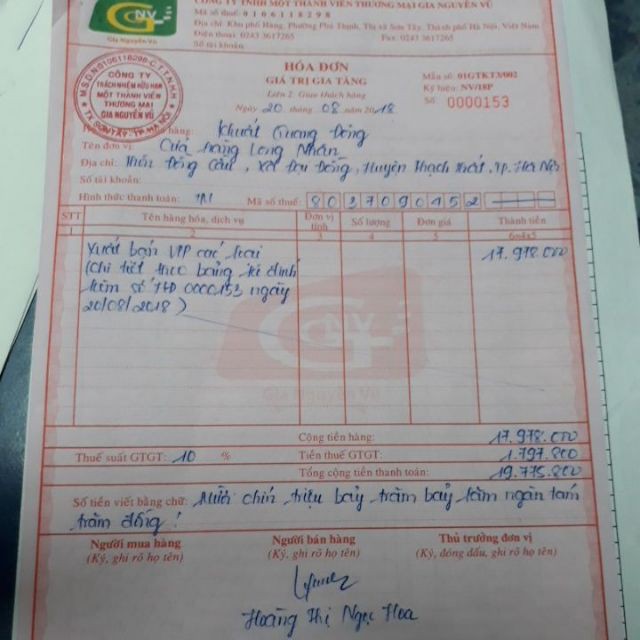 CÔNG TY TNHH MỘT THÀNH VIÊN THƯƠNG MẠI GIA NGUYÊN VŨ
Mã số thuế: 0106118298
Địa chỉ: Khu phố Hàng, Phường Phú Thịnh, Thị xã Sơn Tây, Thành phố Hà Nội, Việt Nam
Điện thoại: 0243 3617265 Fax: 0243 3617265
Số tài khoản:
GNV
Gia Nguyên Vũ
HÓA ĐƠN
GIÁ TRỊ GIA TĂNG
Liên 2: Giao khách hàng
Ngày 20 tháng 08 năm 2018
Mẫu số: 01GTKT3/002
Ký hiệu: NV/18P
Số: 0000153
M.S.D.N:0106118298-C.T.T.N.H.H
CÔNG TY
TRÁCH NHIỆM HỮU HẠN
MỘT THÀNH VIÊN
THƯƠNG MẠI
GIA NGUYÊN VŨ
TX. SƠN TÂY - TP. HÀ NỘI
hàng: Khuất Quang Đông
Tên đơn vị: Cửa hàng Long Nhân
Địa chỉ: Thôn Đồng Cầu, Xã Đại Đồng, Huyện Thạch Thất, Tp. Hà Nội
Số tài khoản:
Hình thức thanh toán: TM Mã số thuế: 8037090452
STT Tên hàng hóa, dịch vụ Đơn vị tính Số lượng Đơn giá Thành tiền
1 2 3 4 5 6=4x5
Xuất bán VPP các loại 17.978.000
(Chi tiết theo bảng kê đính
kèm số HĐ 0000153 ngày
20/08/2018)
GNV
Gia Nguyên Vũ
Cộng tiền hàng: 17.978.000
Thuế suất GTGT: 10 % Tiền thuế GTGT: 1.797.800
Tổng cộng tiền thanh toán: 19.775.800
Số tiền viết bằng chữ: Mười chín triệu bảy trăm bảy lăm ngàn tám
trăm đồng!
Người mua hàng Người bán hàng Thủ trưởng đơn vị
(Ký, ghi rõ họ tên) (Ký, ghi rõ họ tên) (Ký, đóng dấu, ghi rõ họ tên)
Hoàng Thị Ngọc Hoa